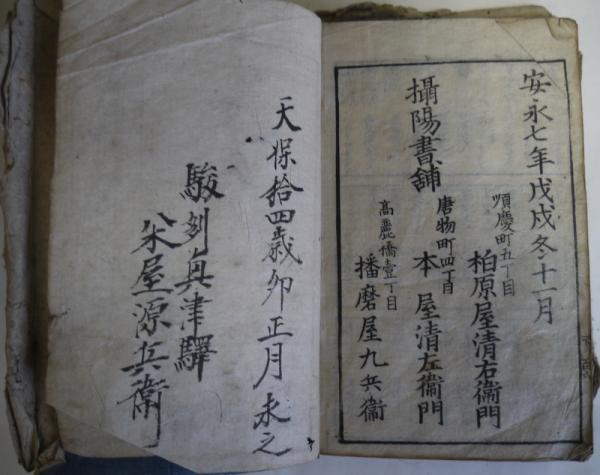 安永七年戊戌冬十一月
攝陽書舗
順慶町五丁目
柏原屋清右衞門
唐物町四丁目
本屋清左衞門
高麗橋壹丁目
播磨屋九兵衞
天保拾四歳卯正月未之
駿刕奥津驛
米屋源兵衞